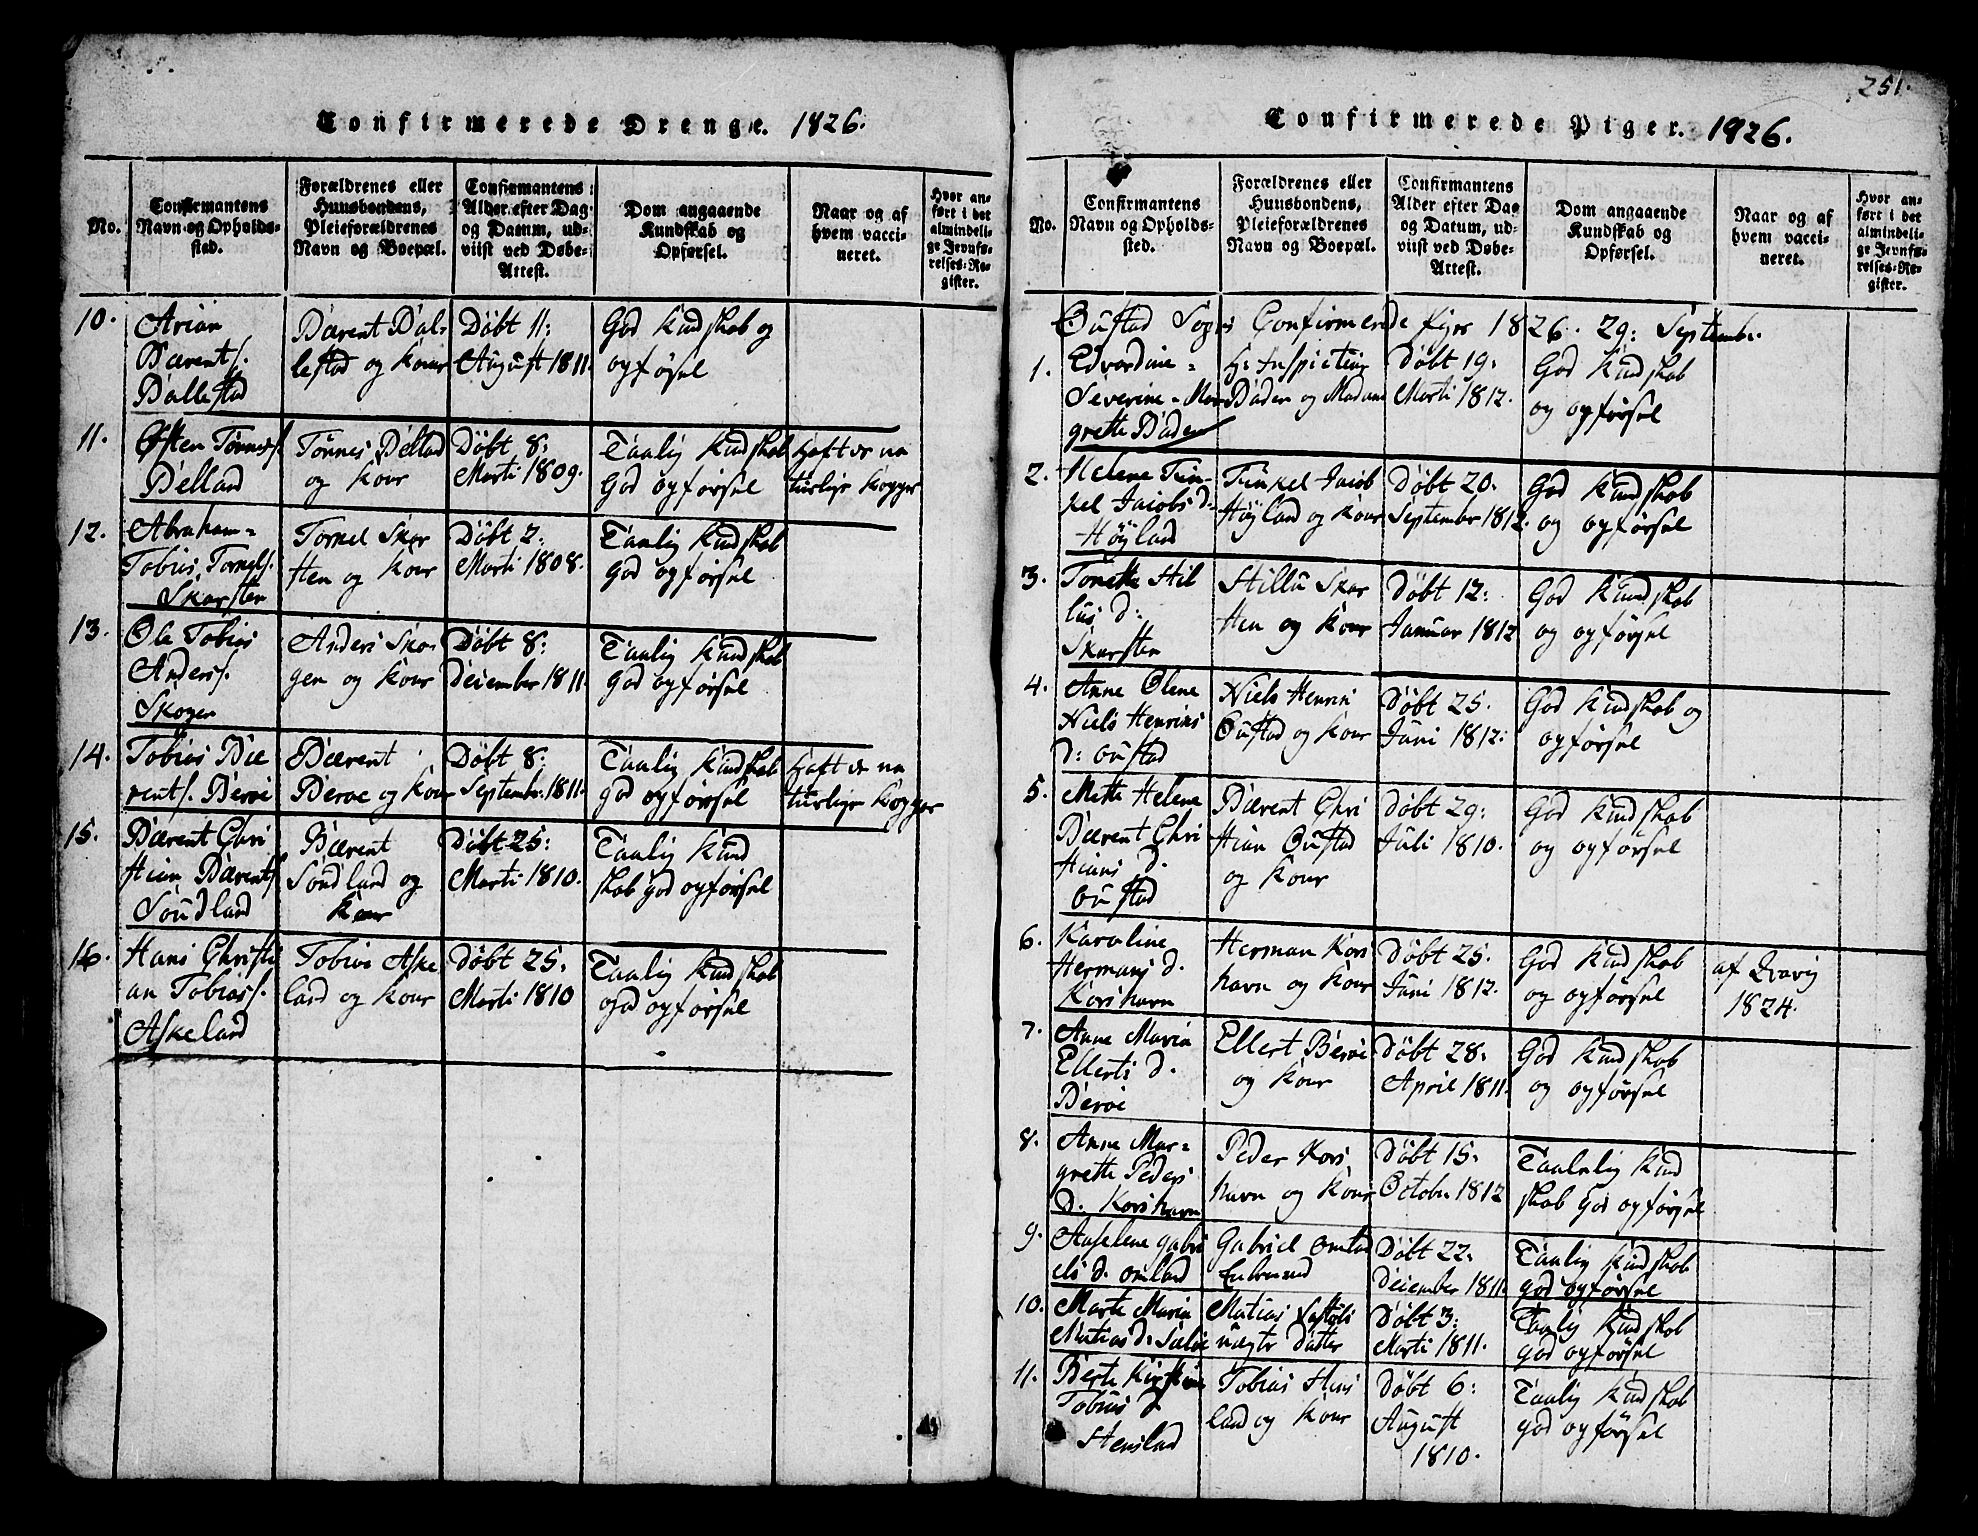 251.
Confirmerede Drenge. 1826.
No.
Confirmantens
Navn og Opholds-
sted.
Forældrenes eller
Huusbondens,
Pleieforældrenes
Navn og Boepæl.
Confirmantens
Alder efter Dag
og Datum, ud-
viist ved Døbe-
Attest.
Dom angaaende
Kundskab og
Opførsel.
Naar og af
hvem vacci-
neret.
Hvor an-
ført i det
almindeli-
ge Jevnfø-
relses-Re-
gister.
10.
Arian
Bærents.
Ballestad
Bærent Bal-
lestad og Kone
Döbt 11:
August 1811.
God Kundskab og
opførsel
11.
Østen Tönnes.
Belland
Tönnes Belland
og Kone
Döbt 8:
Marti 1809.
Taalig Kundskab
God opførsel
Haft de na
turlige Kopper
12.
Abraham-
Tobias Tornels.
Skarsten
Tornel Skar
sten og Kone
Döbt 2:
Marti 1808.
Taalig Kundskab
God opførsel
13.
Ole Tobias
Anders.
Skogen
Anders Sko-
gen og Kone
Döbt 8:
December 1811.
Taalig Kundskab
God opførsel
14.
Tobias Bæ
rents. Beröe
Bærent
Beröe og Kone
Döbt 8:
Septembr. 1811.
Taalig Kundskab
god opførsel
Haft de na
turlige Kopper
15.
Bærent Chri
stian Bærents
Söndland
Bærent
Söndland og
Kone
Döbt 25:
Marti 1810.
Taalig Kund
skab god opførsel
16.
Hans Christi
an Tobias.
Askeland
Tobias Aske
land og Kone
Döbt 25.
Marti 1810
Taalig Kundskab
god opførsel
Confirmerede Piger. 1926.
No.
Confirmantens
Navn og Opholds-
sted.
Forældrenes eller
Huusbondens,
Pleieforældrenes
Navn og Boepæl.
Confirmantens
Alder efter Dag
og Datum, ud-
viist ved Døbe-
Attest.
Dom angaaende
Kundskab og
Opførsel.
Naar og af
hvem vacci-
neret.
Hvor an-
ført i det
almindeli-
ge Jevnfø-
relses-Re-
gister.
Oustad Sogns Confirmerede 1826. 29: Septembr.
1.
Edvardine-
Severine-Mar
grette Baden
Hr Inspicteur
Baden og Madam
Döbt 19:
Marti 1812.
God Kundskab
og opførsel
2.
Helene Tun-
kel Jacobs d-
Höyland
Tunkel Jacob
Höyland og Kone
Döbt 20.
September 1812.
God Kundskab
og opførsel
3.
Tonette Stil
lus d:
Skarsten
Stillu Skar
sten og Kone
Döbt 12:
Januar 1812
God Kundskab
og opførsel
4.
Anne Olene
Niels Henriks
d: oustad
Niels Henrik
Oustad og Kone
Döbt 25.
Juni 1812:
God Kundskab og
opførsel
5.
Mette Helene
Bærent Chri
stians d.
oustad
Bærent Chri
stian Oustad
og Kone
Döbt 29:
Juli 1810.
God Kundskab
og opførsel
6.
Karoline
Hermans d.
Korshavn
Herman Kors
havn og Kone
Döbt 25.
Juni 1812.
God Kundskab
og opførsel
af
1824.
7.
Anne Maria
Ellerts d.
Beröe
Ellert Beröe
og Kone
Döbt 28:
April 1811.
God Kundskab
og opførsel
8.
Anne Mar-
grette Peders
d. Korshavn
Peder Kors
havn og Kone
Döbt 15.
Octobr 1812
Taalelig Kund
skab God opførsel
9.
Aaselene gabri
els d. omland
Gabriel omland
Enkemand
Döbt 22.
December 1811.
Taalig Kundskab
god opførsel
10.
Marte Maria
Matias d:
Matias
uægte datter
Döbt 3:
Marti 1811.
Taalig Kundskab
god opførsel
11.
Berte Kirstine
Tobias d
Stensland
Tobias Stens
land og Kone
Döbt 6:
August
1810.
Taalig Kundskab
god opførsel